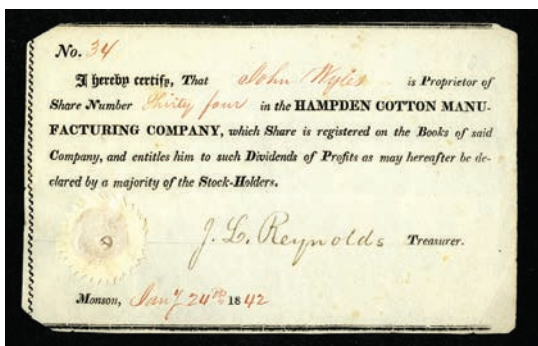 No. 34
I hereby certify, That John Wyles is Proprietor of
Share Number Thirty four in the HAMPDEN COTTON MANU-
FACTURING COMPANY, which Share is registered on the Books of said
Company, and entitles him to such Dividends of Profits as may hereafter be de-
clared by a majority of the Stock-Holders.
J. L. Reynolds Treasurer.
Monson, Jany 24th 1842